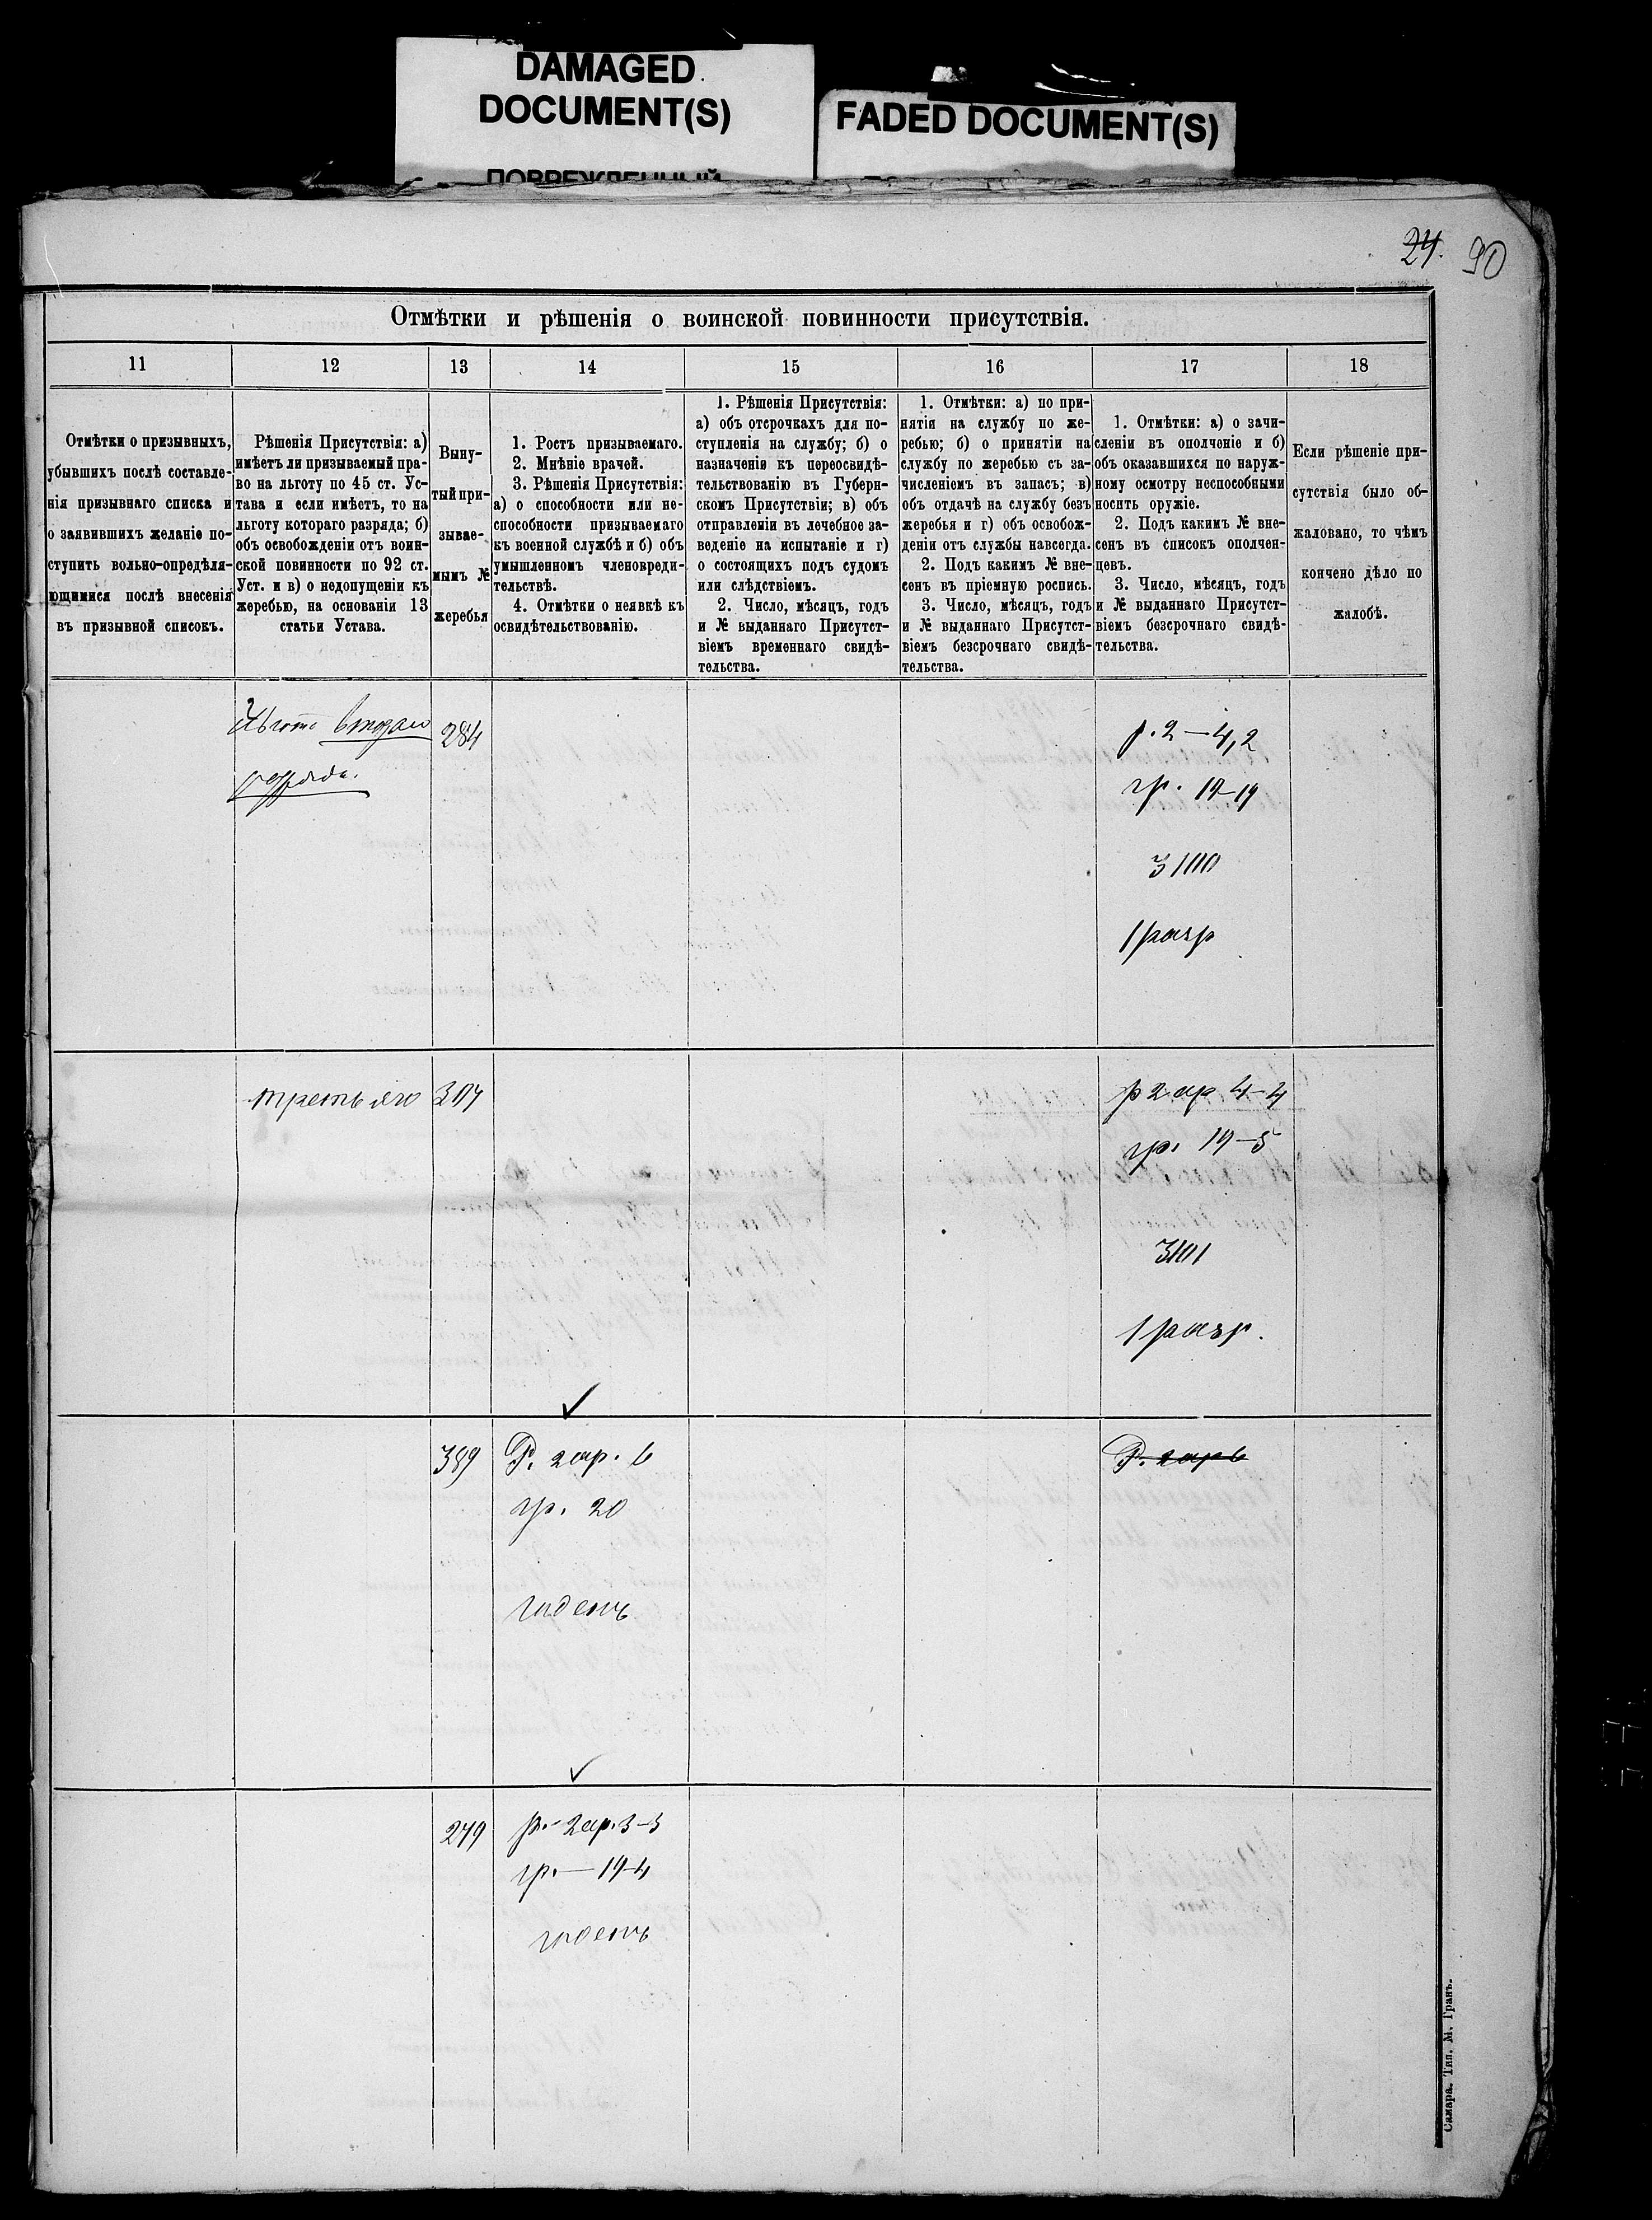 DAMAGED
DOCUMENT(S)
FADED DOCUMENT(S)
ПОВРЕЖДЕННЫЙ
24. 90
Отмѣтки и рѣшенія о воинской повинности присутствія.
11
12
13
14
15
16
17
18
Отмѣтки о призывныхъ,
убывшихъ послѣ составле-
нія призывнаго списка и
о заявившихъ желаніе по-
ступить вольно-опредѣля-
ющимися послѣ внесенія
въ призывной списокъ.
Рѣшенія Присутствія: а)
имѣетъ ли призываемый пра-
во на льготу по 45 ст. Ус-
тава и если имѣетъ, то на
льготу котораго разряда; б)
объ освобожденіи отъ воин-
ской повинности по 92 ст.
Уст. и в) о недопущеніи къ
жеребью, на основаніи 13
статьи Устава.
Выну-
тый при-
зывае-
мымъ №
жеребья
1. Ростъ призываемаго.
2. Мнѣніе врачей.
3. Рѣшенія Присутствія:
а) о способности или не-
способности призываемаго
къ военной службѣ и б) объ
умышленномъ членовреди-
тельствѣ.
4. Отмѣтки о неявкѣ къ
освидѣтельствованію.
1. Рѣшенія Присутствія:
а) объ отсрочкахъ для по-
ступленія на службу; б) о
назначеніи къ переосвидѣ-
тельствованію въ Губерн-
скомъ Присутствіи; в) объ
отправленіи въ лечебное за-
веденіе на испытаніе и г)
о состоящихъ подъ судомъ
или слѣдствіемъ.
2. Число, мѣсяцъ, годъ
и № выданнаго Присутст-
віемъ временнаго свидѣ-
тельства.
1. Отмѣтки: а) по при-
нятія на службу по же-
ребью; б) о принятіи на
службу по жеребью съ за-
численіемъ въ запасъ; в)
объ отдачѣ на службу безъ
жеребья и г) объ освобож-
деніи отъ службы навсегда.
2. Подъ какимъ № вне-
сенъ въ пріемную роспись.
3. Число, мѣсяцъ, годъ
и № выданнаго Присутст-
віемъ безсрочнаго свидѣ-
тельства.
1. Отмѣтки: а) о зачи-
сленіи въ ополченіе и б)
объ оказавшихся по наруж-
ному осмотру неспособными
носить оружіе.
2. Подъ какимъ № вне-
сенъ въ списокъ ополчен-
цевъ.
3. Число, мѣсяцъ, годъ
и № выданнаго Присутст-
віемъ безсрочнаго свидѣ-
тельства.
Если рѣшеніе при-
сутствія было об-
жаловано, то чѣмъ
кончено дѣло по
жалобѣ.
втораго
разряда.
284
р. 2—4,2
гр. 19-19
3100
1 разр
третьяго
307
р 2 ар 4-4
гр. 19-5
3101
1 разр.
389
Р. 2 ар. 6
гр. 20
годенъ
Р. 2 ар 6
279
р. 2 ар. 3-3
гр.— 19-4
годенъ
Самара. Тип. М. Гранъ.